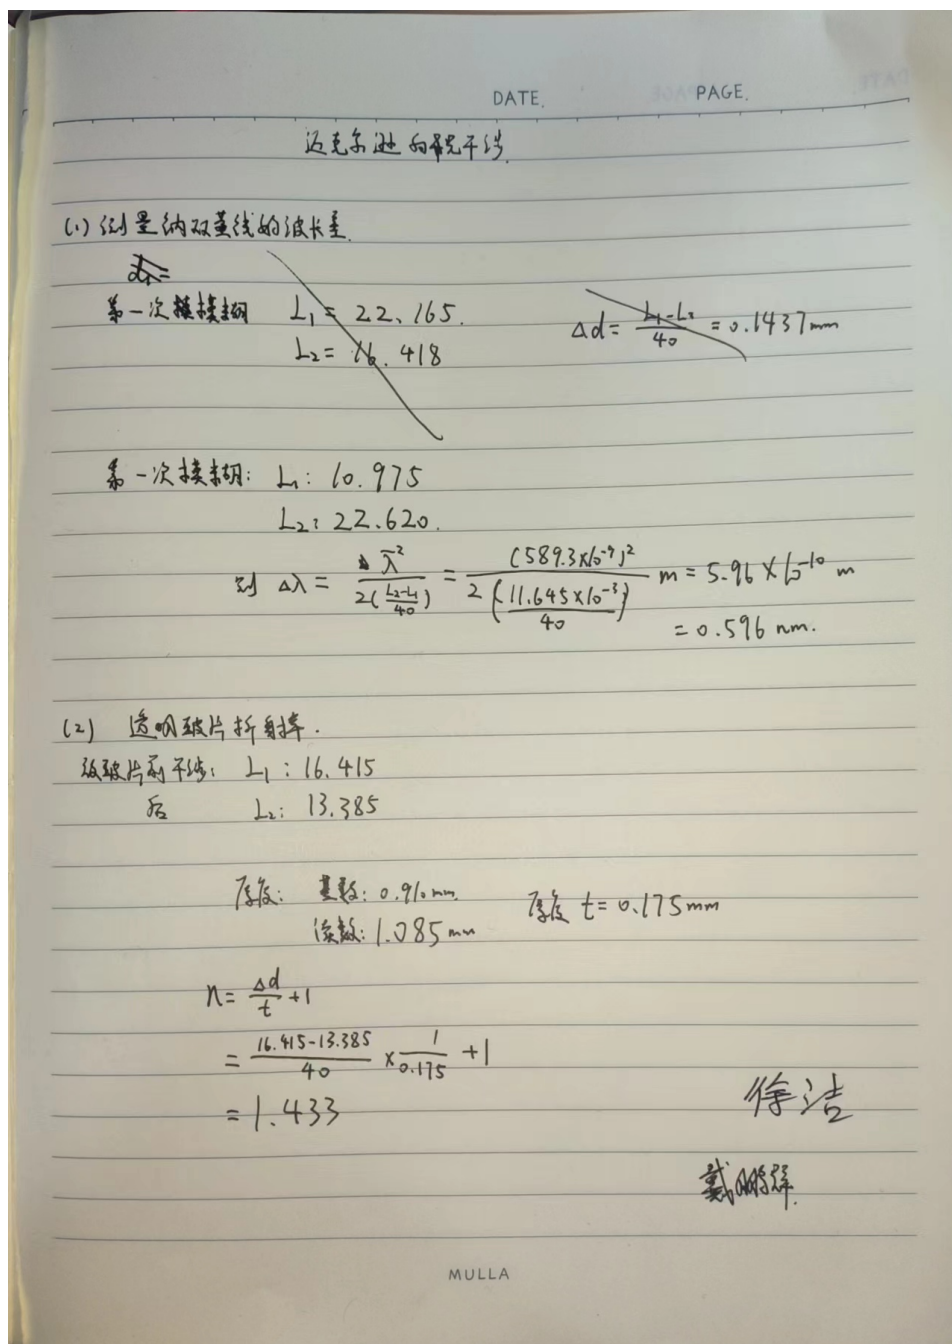 DATE. PAGE.
迈克尔逊白光干涉.
(1) 测量纳双黄线的波长差.
第一次模糊 L₁ = 22.165.
L₂ = 16.418
Δd = (L₁-L₂)/40 = 0.1437mm
第一次模糊: L₁: 10.975
L₂: 22.620.
则 Δλ = λ̄²/(2((L₂-L₁)/40)) = (589.3×10⁻⁹)²/(2((11.645×10⁻³)/40)) m = 5.96×10⁻¹⁰ m
= 0.596 nm.
(2) 透明玻片折射率.
放玻片前干涉: L₁: 16.415
后 L₂: 13.385
厚度: 基数: 0.910mm.
读数: 1.085mm
厚度 t = 0.175mm
n = Δd/t + 1
= (16.415-13.385)/40 × 1/0.175 + 1
= 1.433
徐洁
MULLA